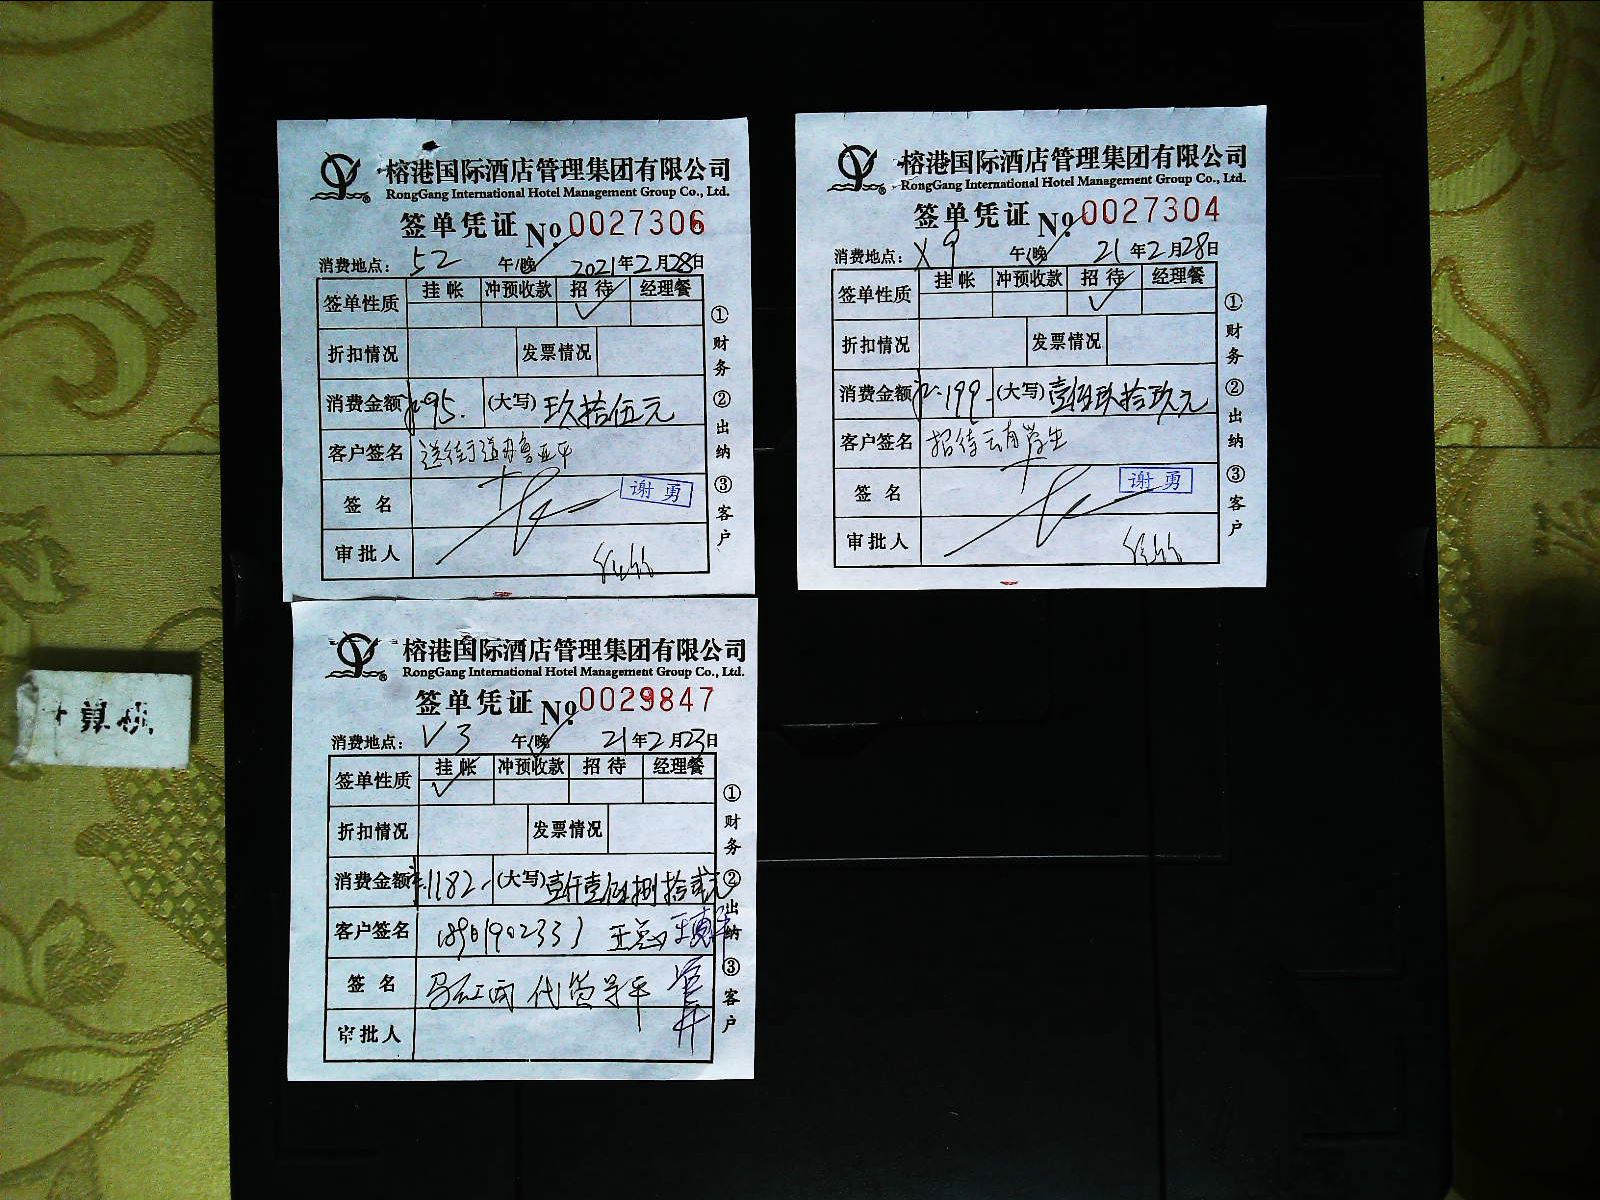 榕港国际酒店管理集团有限公司
RongGang International Hotel Management Group Co., Ltd.
签单凭证 No. 0027306
消费地点: 52 午/晚 2021年2月28日
签单性质 挂帐 冲预收款 招待 经理餐
折扣情况 发票情况
消费金额 95. (大写) 玖拾伍元
客户签名
签名 谢勇
审批人
①财务 ②出纳 ③客户
榕港国际酒店管理集团有限公司
RongGang International Hotel Management Group Co., Ltd.
签单凭证 No. 0027304
消费地点: X9 午/晚 21年2月28日
签单性质 挂帐 冲预收款 招待 经理餐
折扣情况 发票情况
消费金额 199- (大写) 壹佰玖拾玖元
客户签名 招待
签名 谢勇
审批人
①财务 ②出纳 ③客户
榕港国际酒店管理集团有限公司
RongGang International Hotel Management Group Co., Ltd.
签单凭证 No. 0029847
消费地点: V3 午/晚 21年2月23日
签单性质 挂帐 冲预收款 招待 经理餐
折扣情况 发票情况
消费金额 1182- (大写) 壹仟壹佰捌拾贰元
客户签名 王总
签名
审批人
①财务 ②出纳 ③客户